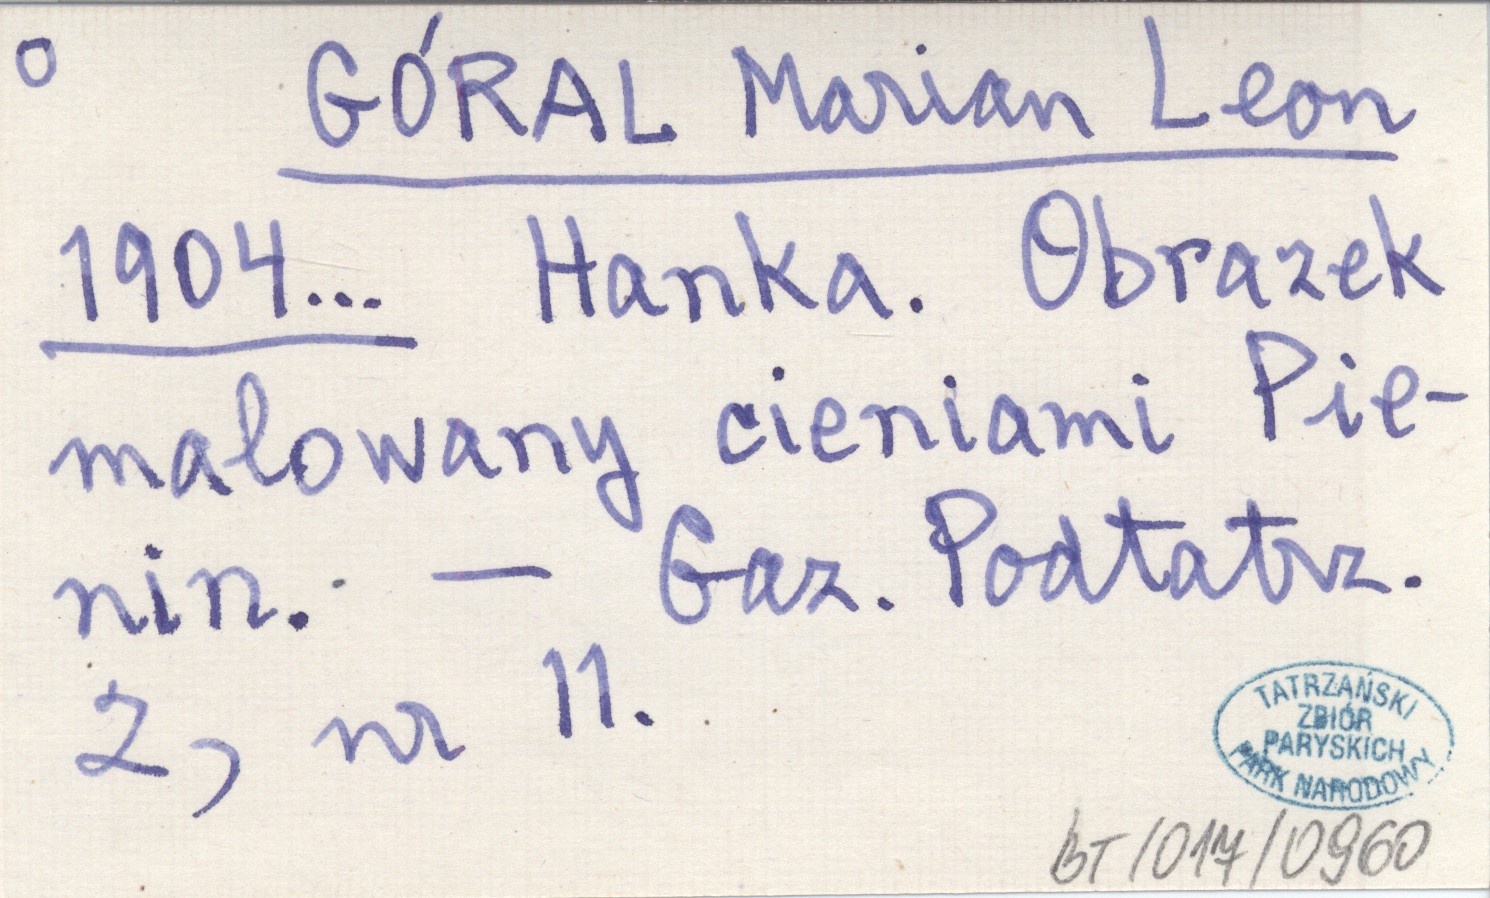 o GÓRAL Marian Leon
1904... Hanka. Obrazek
malowany cieniami Pie-
nin. — Gaz. Podtatrz.
2, nr 11.
TATRZAŃSKI
ZBIÓR
PARYSKICH
PARK NARODOWY
BT/017/0960